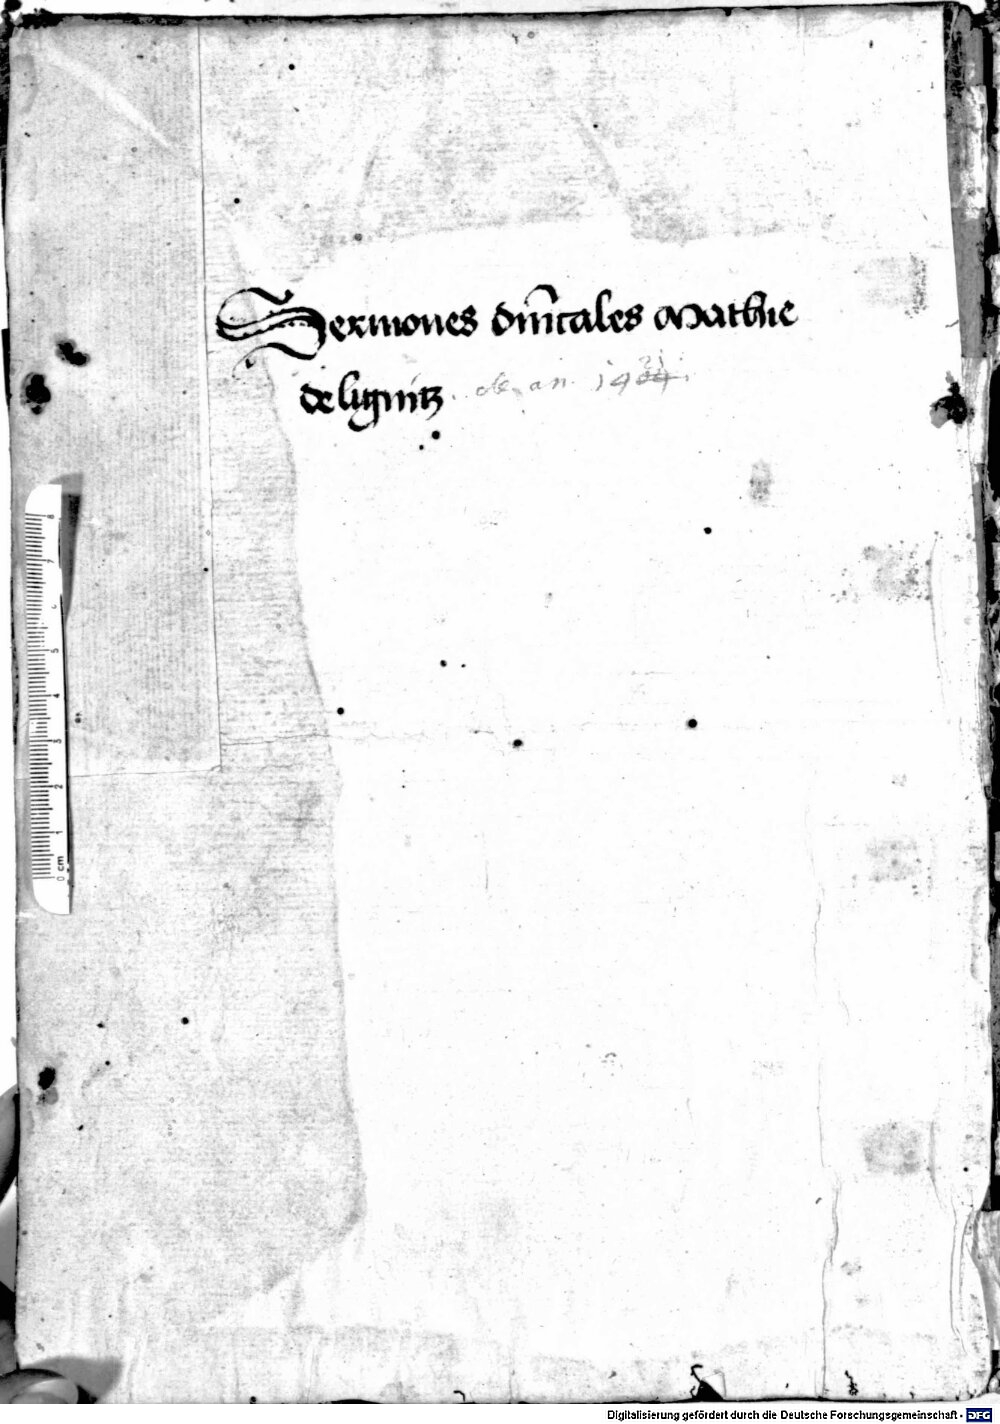 Sermones dn̄icales Mathie
de lignitz. de an. 14
8
7
6
5
4
3
2
1
0 cm
Digitalisierung gefördert durch die Deutsche Forschungsgemeinschaft - DFG